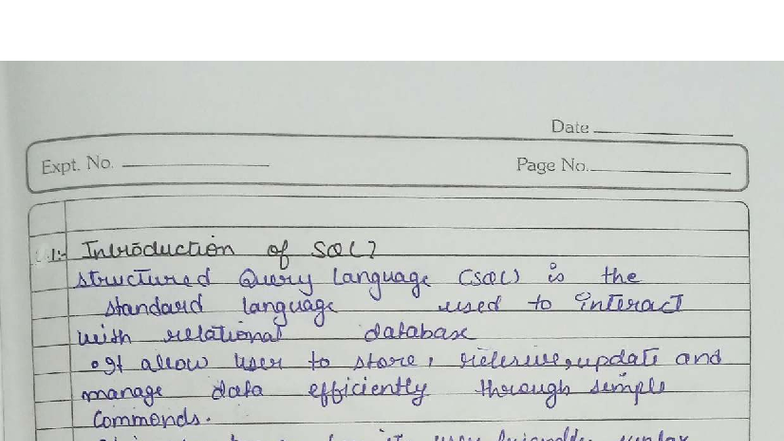 Date
Expt. No.
Page No.
1:- Introduction of SQL?
structured Query Language (SQL) is the
standard language used to interact
with relational database
• It allow user to store, reterive, update and
manage data efficiently through simple
Commonds.